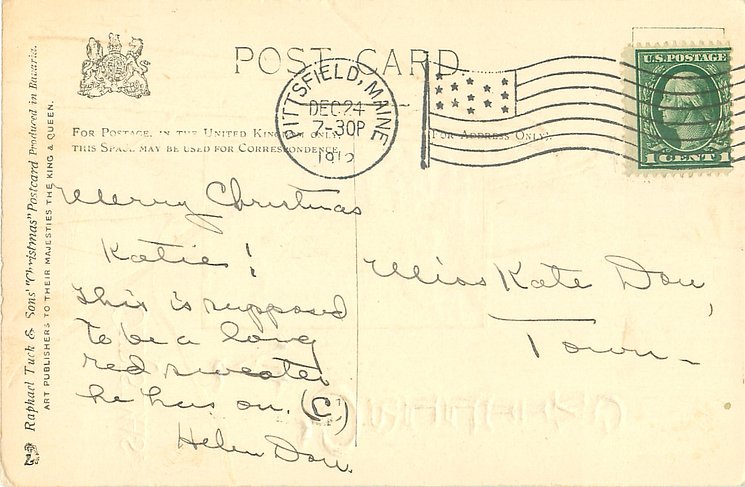 POST CARD
PITTSFIELD, MAINE
DEC 24
7-30P
1912
U.S. POSTAGE
1 CENT 1
FOR POSTAGE, IN THE UNITED KINGDOM ONLY,
THIS SPACE MAY BE USED FOR CORRESPONDENCE
(FOR ADDRESS ONLY)
Raphael Tuck & Sons' "Christmas" Postcard Produced in Bavaria.
ART PUBLISHERS TO THEIR MAJESTIES THE KING & QUEEN.
Merry Christmas
Katie!
This is supposed
to be a long
red sweater
he has on. (C)
Helen Dow.
Miss Kate Dow,
Town—